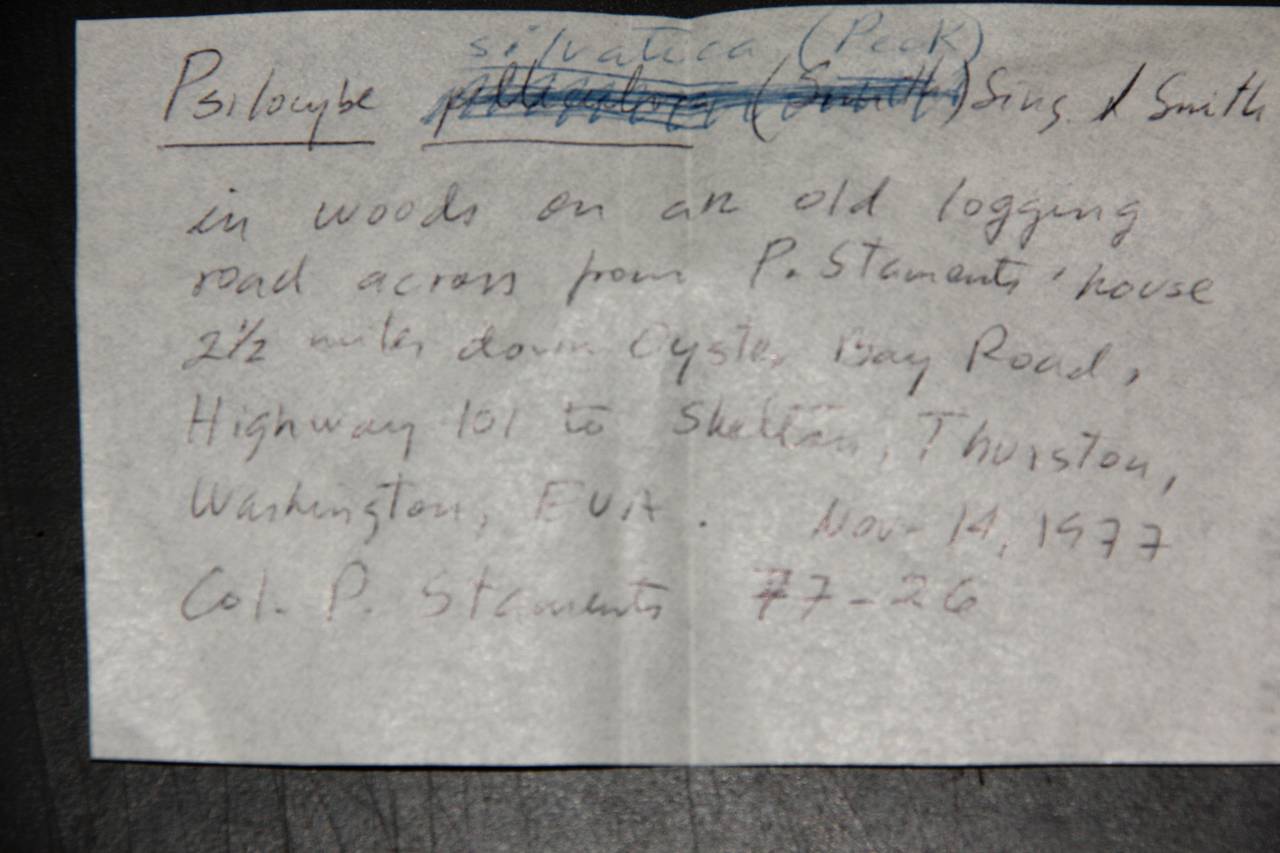 silvatica (Peck)
Psilocybe pelliculosa (Smith) Sing. & Smith
in woods on an old logging
road across from P. Staments' house
2½ miles down Oyster Bay Road,
Highway 101 to Shelton, Thurston,
Washington, EUA. Nov- 14, 1977
Col. P. Staments 77-26